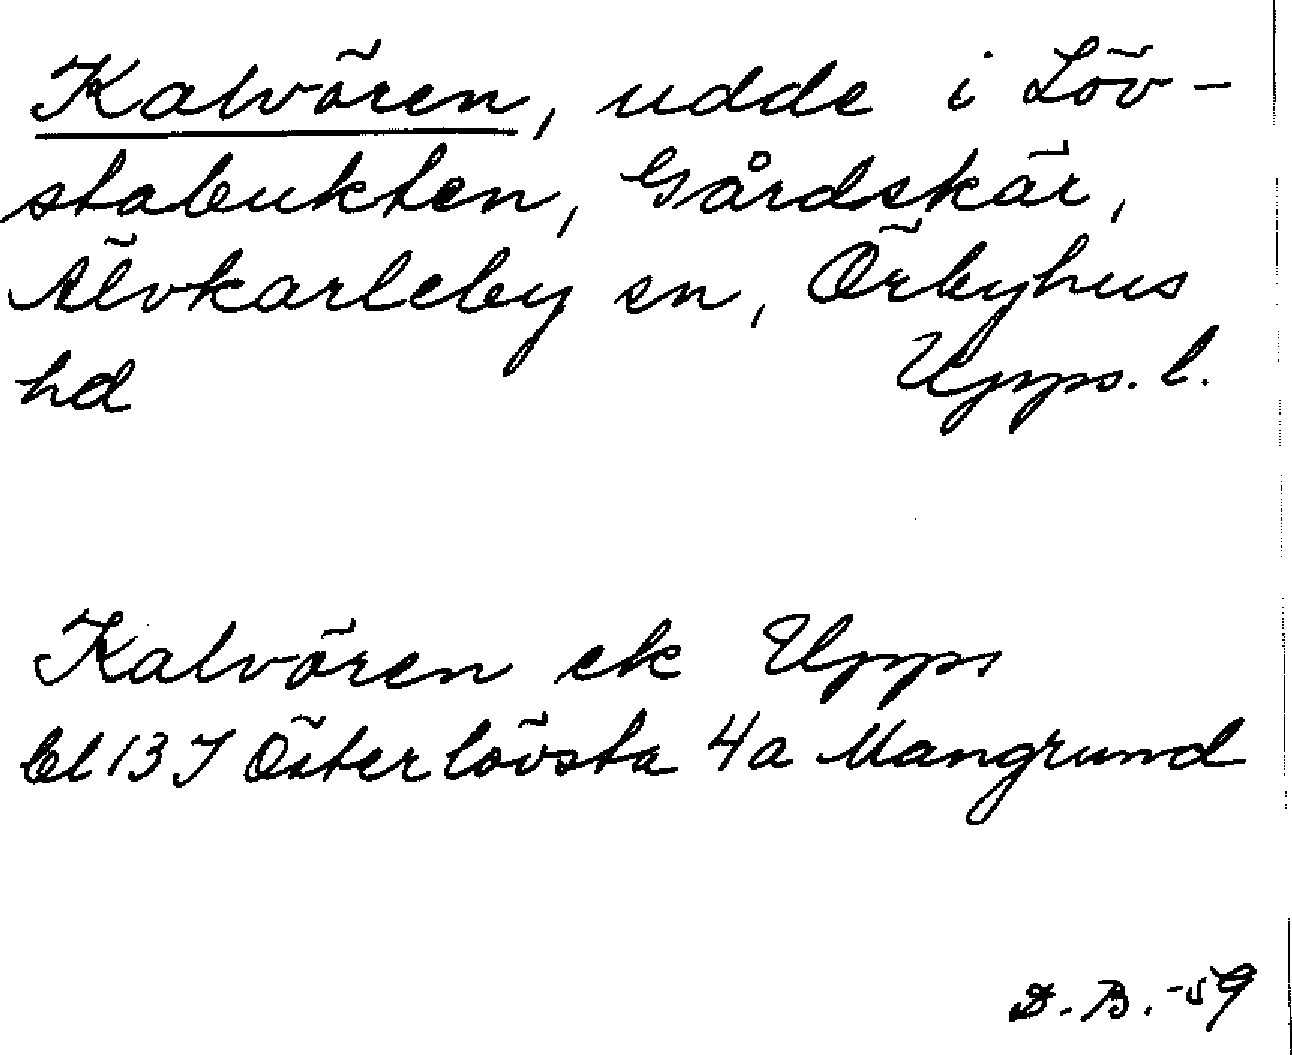 Kalvören, udde i Löv-
stabukten, Gårdskär,
Älvkarleby sn, Örbyhus
hd Upps. l.
Kalvören ek Upps
bl 13 I Österlövsta 4a Mangrund
D. B. -59